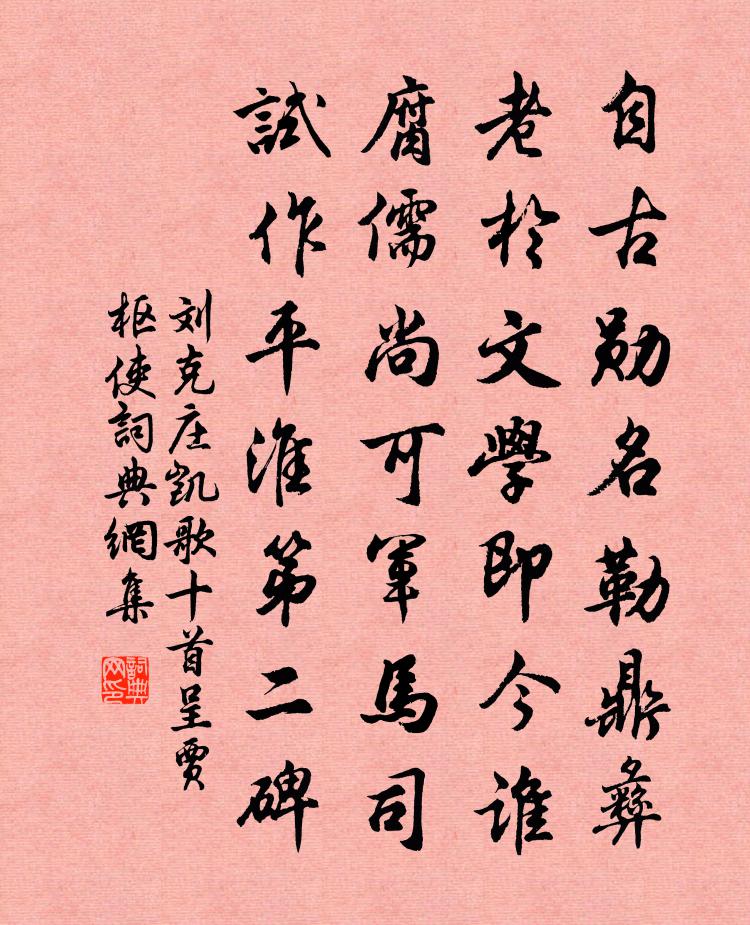 自古勋名勒鼎彝
老於文學即今谁
腐儒尚可軍馬司
試作平淮第二碑
刘克庄凯歌十首呈贾
枢使詞典網集
詞典网印